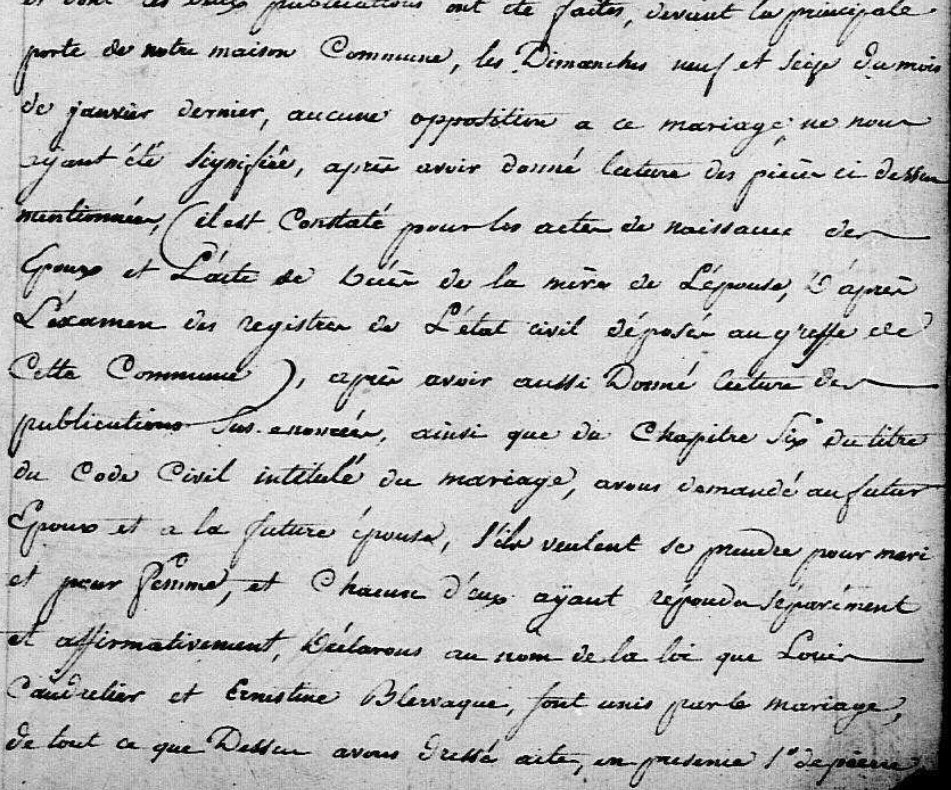 et dont les deux publications ont été faites, devant la principale
porte de notre maison Commune, les Dimanches neuf et seize du mois
de janvier dernier, aucune opposition a ce mariage ne nous
ayant été signifiée, après avoir donné lecture des pièces ci dessus
mentionnées, (il est Constaté pour les actes de naissance des
Epoux et L'acte de Décès de la mère de L'épouse, D'après
L'examen des registres de L'état civil déposés au greffe de
Cette Commune), après avoir aussi Donné lecture des
publications sus-énoncées, ainsi que du Chapitre Six du titre
du Code Civil intitulé du mariage, avons demandé au futur
Epoux et a la future épouse, s'ils veulent se prendre pour mari
et pour femme, et Chacun d'eux ayant répondu séparément
et affirmativement, Déclarons au nom de la loi que Louis
Caudrelier et Ernistine Blervaque, sont unis par le mariage,
de tout ce que Dessus avons dressé acte, en présence 1° de pierre